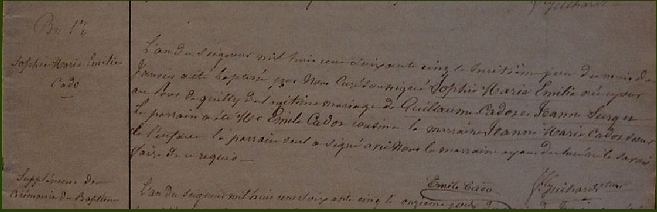 Sophie Marie Emilie
Cado
L'an du seigneur mil huit cent soixante cinq le huitième jour du mois de
Janvier a été baptisée par Nous Curé soussigné Sophie Marie Emilie née
au de légitime mariage de Guillaume Cado et Jeanne
Le parrain a été Emile Cado cousin la marraine Jeanne Marie Cado soeur
de l'enfant le parrain seul a signé avec Nous la marraine ayant déclaré ne savoir
faire de ce requis
Emile Cado
J. Guihard
Supplément de
Cérémonie du Baptême
L'an du seigneur mil huit cent soixante cinq le onzième jour